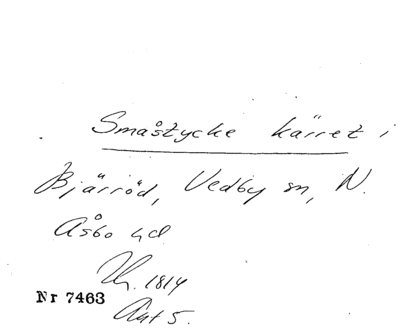 Småstycke kärret i
Bjärröd, Vedby sn, N.
Åsbo hd
1814
Nr 7463
Akt 5.